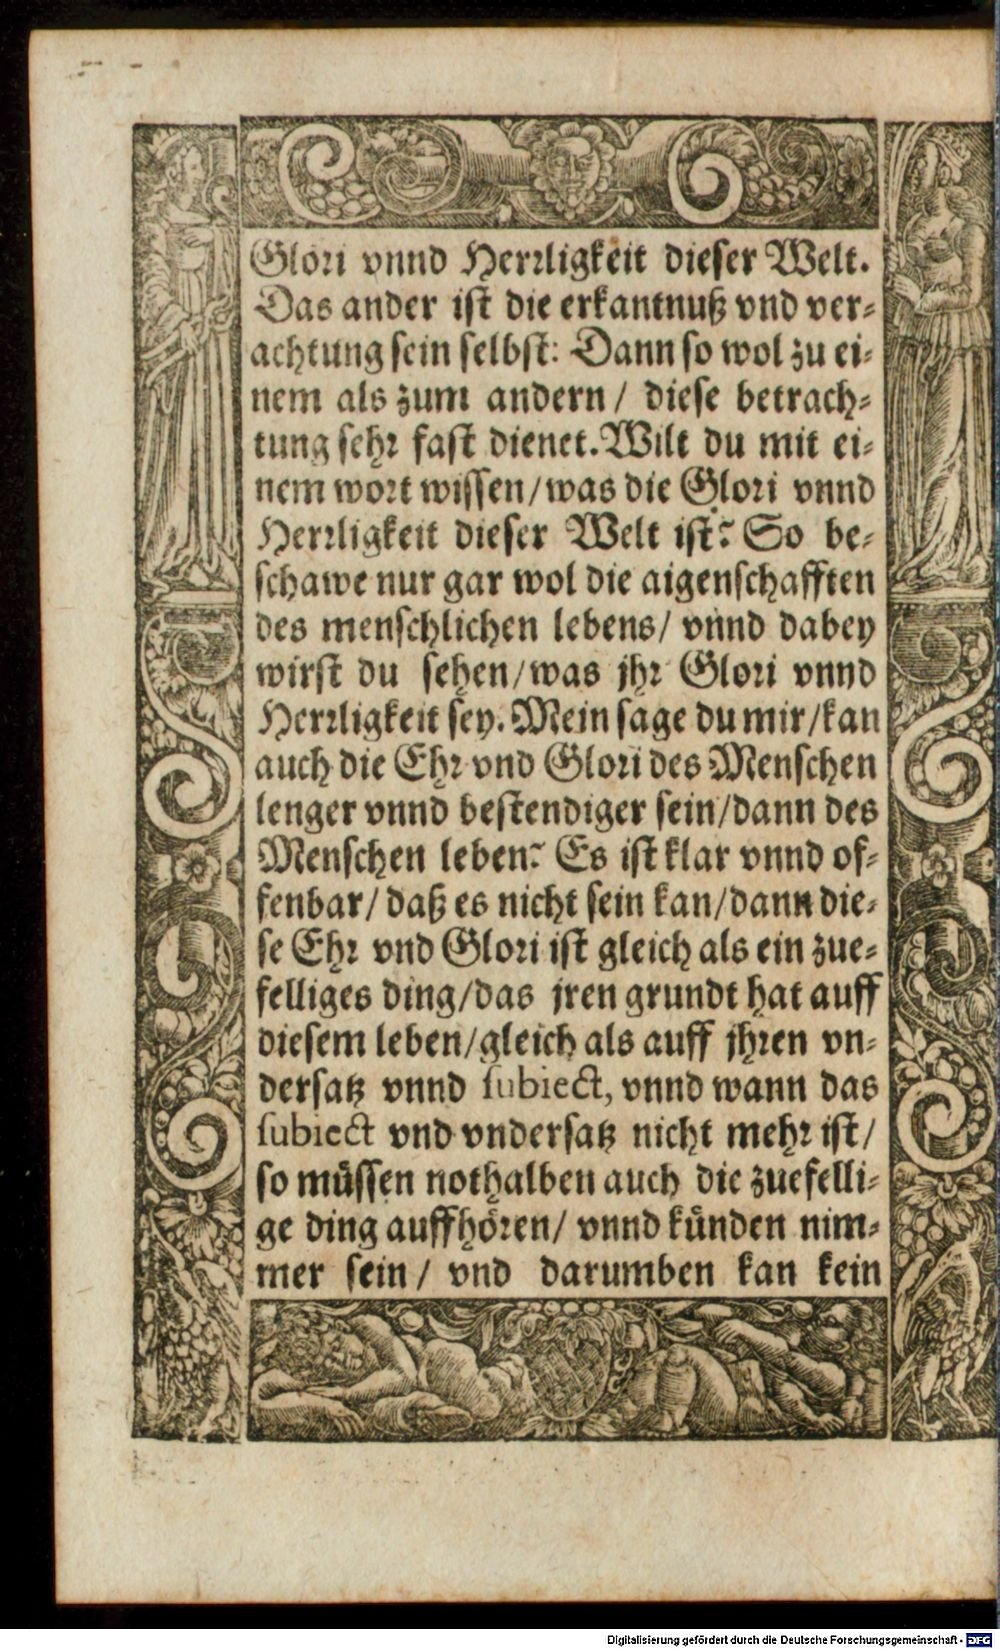 Glori vnnd Herrligkeit dieser Welt.
Das ander ist die erkantnuß vnd ver⸗
achtung sein selbst: Dann so wol zu ei⸗
nem als zum andern / diese betrach⸗
tung sehr fast dienet. Wilt du mit ei⸗
nem wort wissen / was die Glori vnnd
Herrligkeit dieser Welt ist? So be⸗
schawe nur gar wol die aigenschafften
des menschlichen lebens / vnnd dabey
wirst du sehen / was jhr Glori vnnd
Herrligkeit sey. Mein sage du mir / kan
auch die Ehr vnd Glori des Menschen
lenger vnnd bestendiger sein / dann des
Menschen leben? Es ist klar vnnd of⸗
fenbar / daß es nicht sein kan / dann die⸗
se Ehr vnd Glori ist gleich als ein zue⸗
felliges ding / das jren grundt hat auff
diesem leben / gleich als auff jhren vn⸗
dersatz vnnd subiect, vnnd wann das
subiect vnd vndersatz nicht mehr ist /
so müssen nothalben auch die zuefelli⸗
ge ding auffhören / vnnd künden nim⸗
mer sein / vnd darumben kan kein
Digitalisierung gefördert durch die Deutsche Forschungsgemeinschaft - DFG